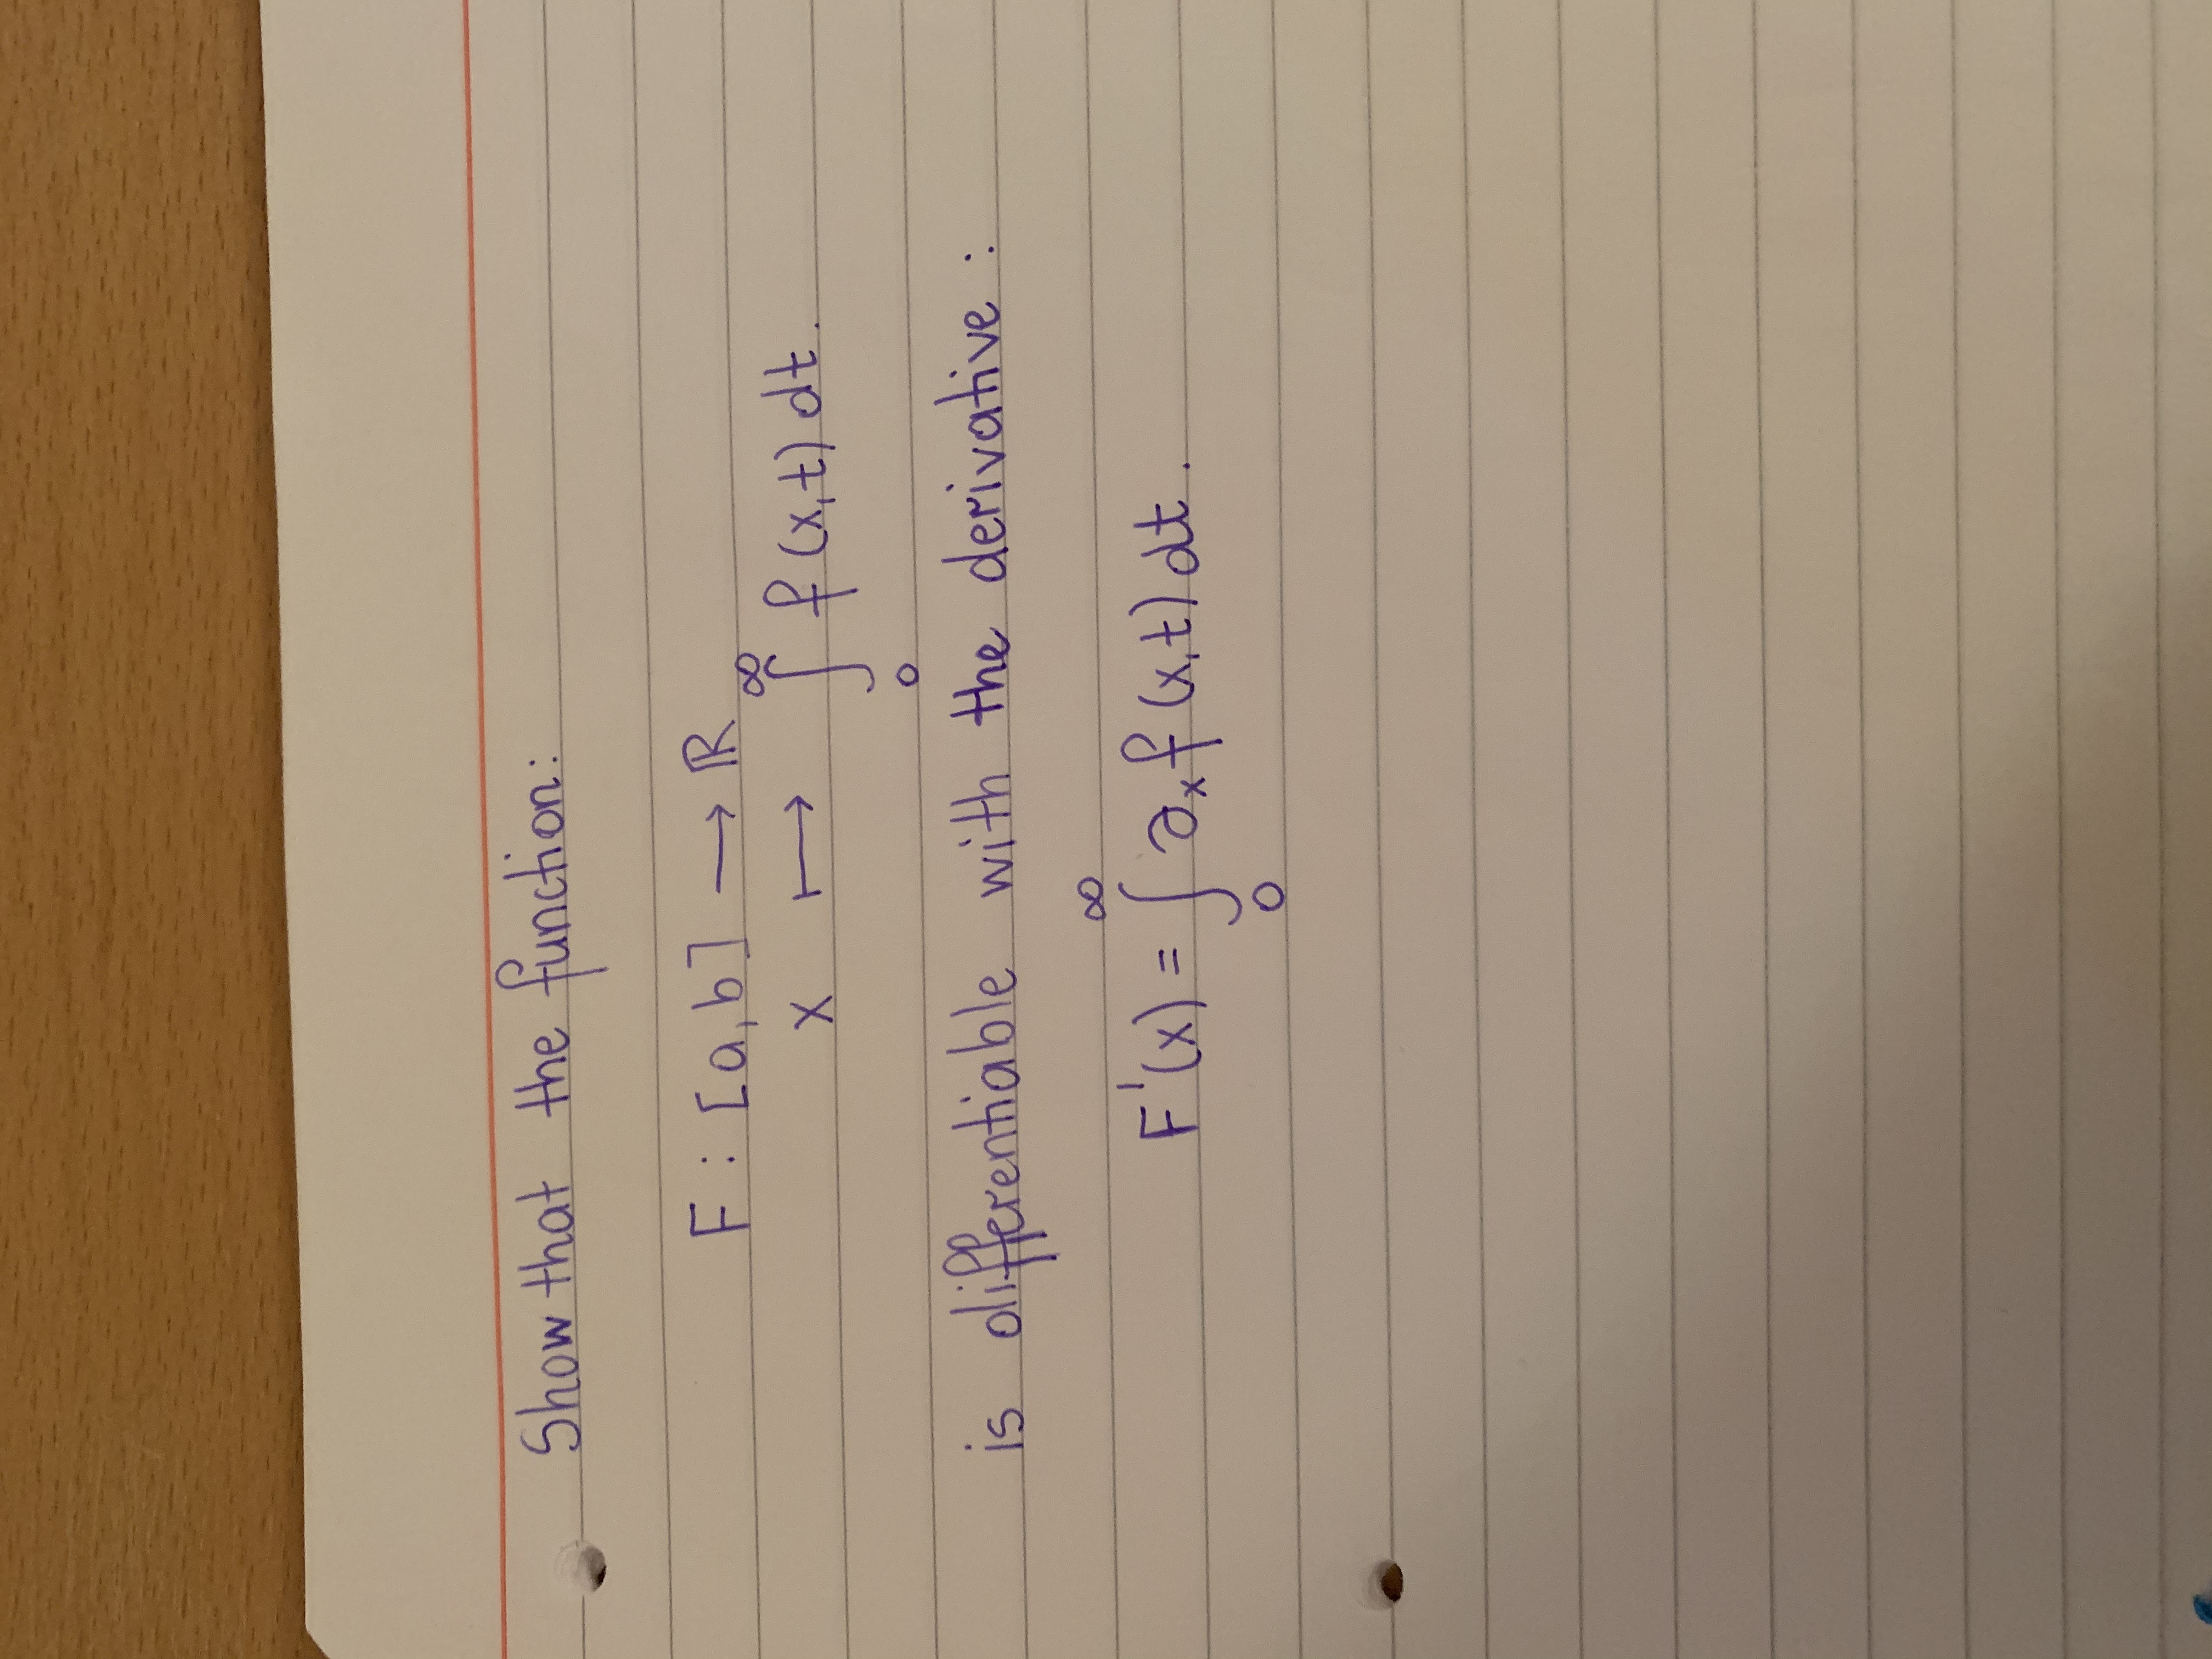 Show that the function:
F : [a,b] ⟶ ℝ
x ⟼ ∫₀^∞ f(x,t) dt.
is differentiable with the derivative :
F'(x) = ∫₀^∞ ∂ₓf(x,t) dt.